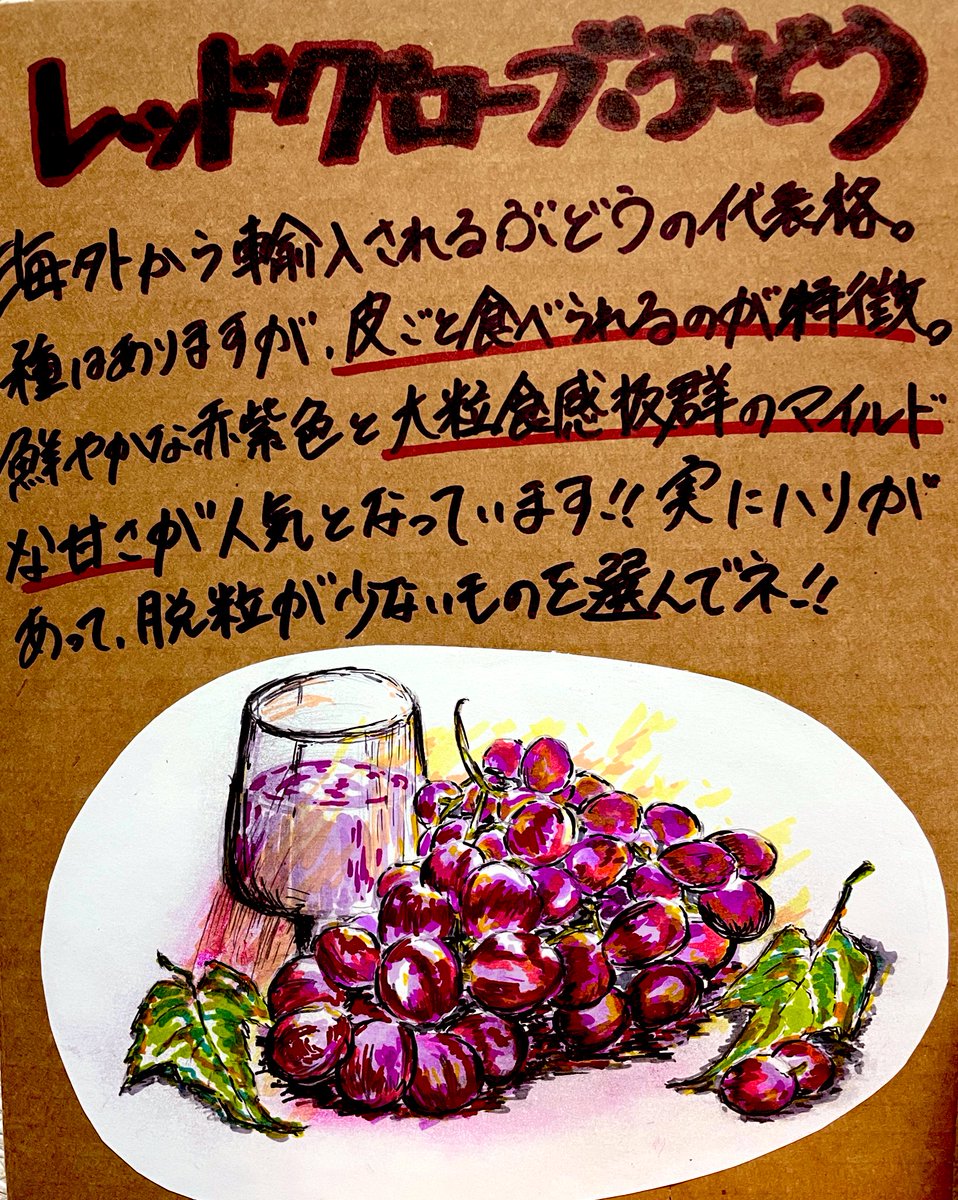 レッドグローブぶどう
海外から輸入されるぶどうの代表格。
種はありますが、皮ごと食べられるのが特徴。
鮮やかな赤紫色と大粒食感抜群のマイルド
な甘さが人気となっています!! 実にハリが
あって、脱粒が少ないものを選んでネー!!